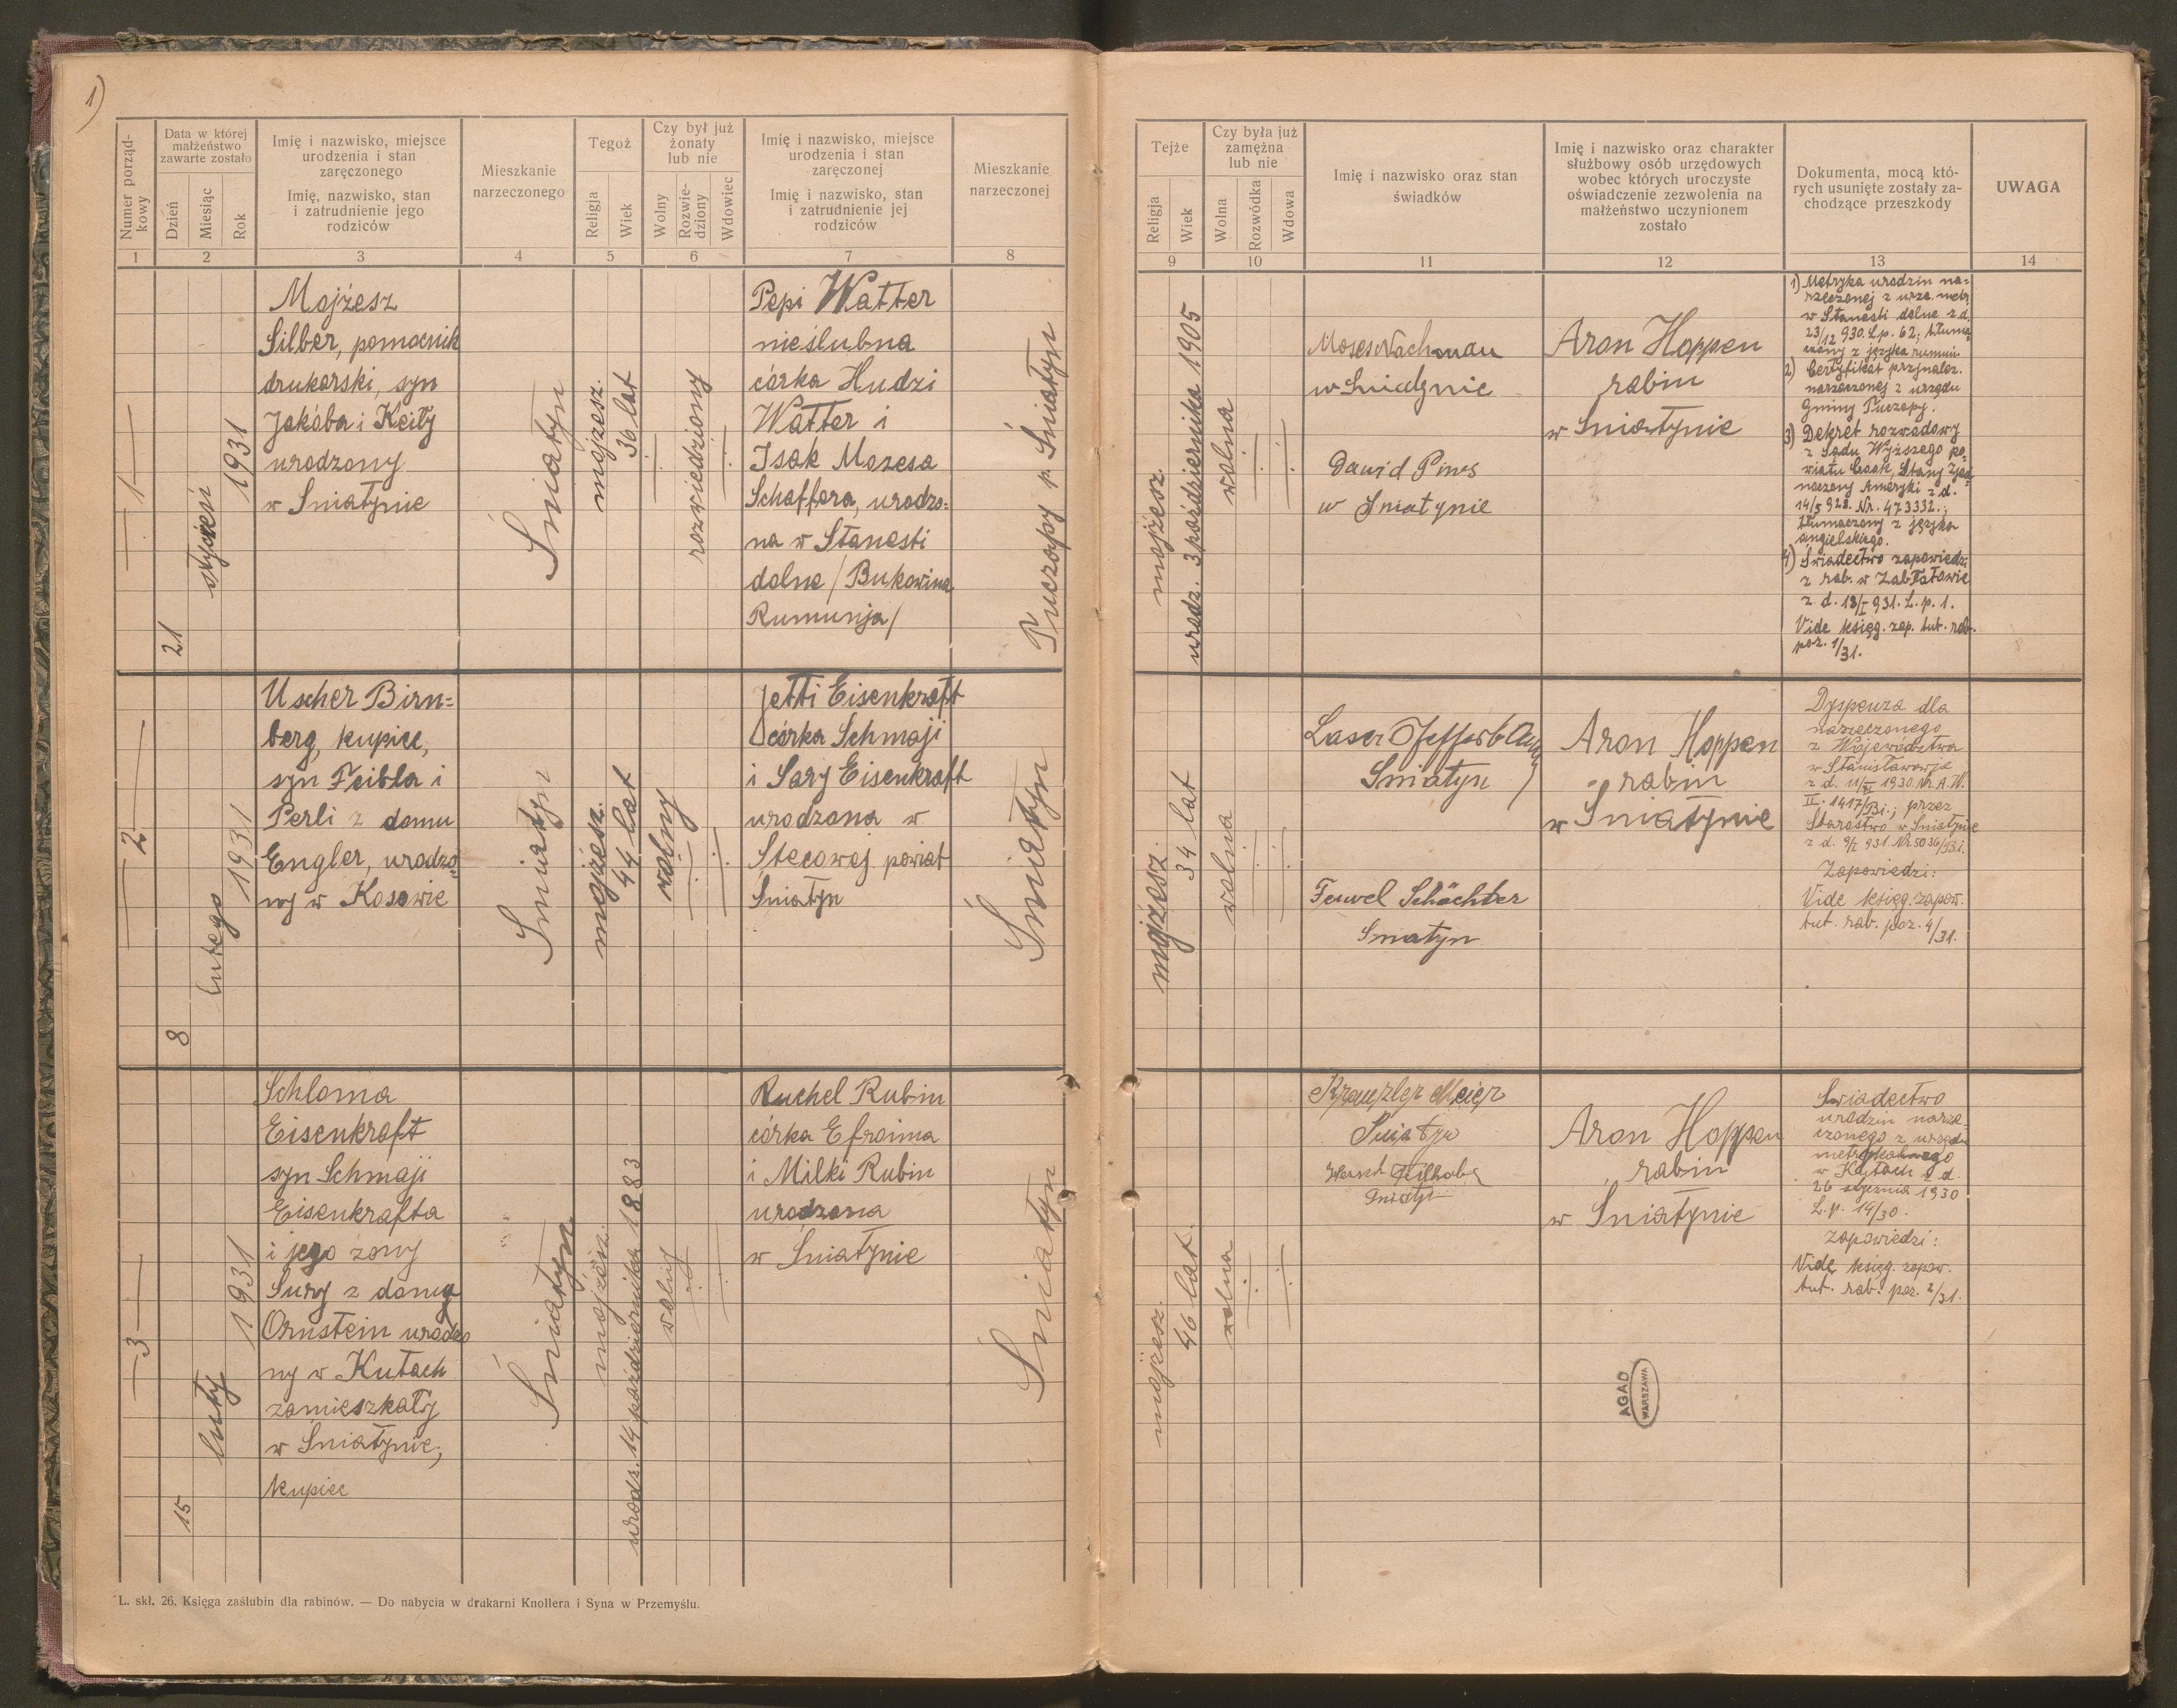 1)
Numer porząd-
kowy
Data w której
małżeństwo
zawarte zostało
Dzień
Miesiąc
Rok
Imię i nazwisko, miejsce
urodzenia i stan
zaręczonego
Imię, nazwisko, stan
i zatrudnienie jego
rodziców
Mieszkanie
narzeczonego
Tegoż
Religja
Wiek
Czy był już
żonaty
lub nie
Wolny
Rozwie-
dziony
Wdowiec
Imię i nazwisko, miejsce
urodzenia i stan
zaręczonej
Imię i nazwisko, stan
i zatrudnienie jej
rodziców
Mieszkanie
narzeczonej
Tejże
Religja
Wiek
Czy była już
zamężna
lub nie
Wolna
Rozwódka
Wdowa
Imię i nazwisko oraz stan
świadków
Imię i nazwisko oraz charakter
służbowy osób urzędowych
wobec których uroczyste
oświadczenie zezwolenia na
małżeństwo uczynionem
zostało
Dokumenta, mocą któ-
rych usunięte zostały za-
chodzące przeszkody
UWAGA
1 2 3 4 5 6 7 8 9 10 11 12 13 14
1
21
styczeń
1931
Mojżesz
Silber, pomocnik
drukarski, syn
Jakóba i Keily
urodzony
w Śniatynie
Śniatyn
mojżesz.
36 lat
rozwiedziony
Pepi Watter
nieślubna
córka Hudzi
Watter i
Isak Mozesa
Schaffera, urodzo=
na w Stanesti
dolne / Bukowina
Rumunja /
Tuczapy p. Śniatyn
mojżesz.
urodz. 3 października 1905
wolna
Moses Nachman
w Śniatynie
Dawid Pines
w Śniatynie
Aron Hoppen
rabin
w Śniatynie
1) Metryka urodzin na=
rzeczonej z urzę. metr.
w Stanesti dolne z d.
23/12 930. L.p. 62; tłuma
czony z języka rumuń.
2) Certyfikat przynależ.
narzeczonej z urzędu
Gminy Tuczapy.
3) Dekret rozwodowy
z Sądu Wyższego po=
wiatu Cook, Stany Zjed=
noczony Ameryki z d.
14/5 928. Nr. 473332.;
tłumaczony z języka
angielskiego.
4) Świadectwo zapowiedzi
z rab. w Zabłatowie
z d. 18/I 931. L.p. 1.
Vide księg. zap. tut. rab.
poz. 1/31.
2
8
lutego
1931
Uscher Birn=
berg, kupiec,
syn Feibla i
Perli z domu
Engler, urodzo=
ny w Kosowie
Śniatyn
mojżesz.
44 lat
wolny
Jetti Eisenkraft
córka Schmaji
i Sary Eisenkraft
urodzona w
Stecowej powiat
Śniatyn
Śniatyn
mojżesz.
34 lat
wolna
Laser
Śniatyn
Feuvel Schächter
Śniatyn
Aron Hoppen
rabin
w Śniatynie
Dyspenza dla
narzeczonego
z Województwa
w Stanisławowie
z d. 11/XI 1930. Nr. A.W.
II. 1417/Bi.; przez
Starostwo w Śniatynie
z d. 9/I 931. Nr. 5036/Bi.
Zapowiedzi:
Vide księg. zapow.
tut. rab. poz. 4/31.
3
15
luty
1931
Schloma
Eisenkraft
syn Schmaji
Eisenkrafta
i jego żony
Sury z domu
Ornstein urodzo
ny w Kutach
zamieszkały
w Śniatynie,
kupiec
Śniatyn
mojżesz.
urodz. 14 października 1883
wolny
Ruchel Rubin
córka Efroima
i Milki Rubin
urodzona
w Śniatynie
Śniatyn
mojżesz.
46 lat
wolna
Meier
Śniatyn
Hersch
Śniatyn
Aron Hoppen
rabin
w Śniatynie
Świadectwo
urodzin narze-
czonego z urzędu
metrykalnego
w Kutach z d.
26 stycznia 1930
L.p. 14/30.
Zapowiedzi:
Vide księg. zapow.
tut. rab. poz. 2/31.
AGAD
WARSZAWA
L. skł. 26. Księga zaślubin dla rabinów. — Do nabycia w drukarni Knollera i Syna w Przemyślu.